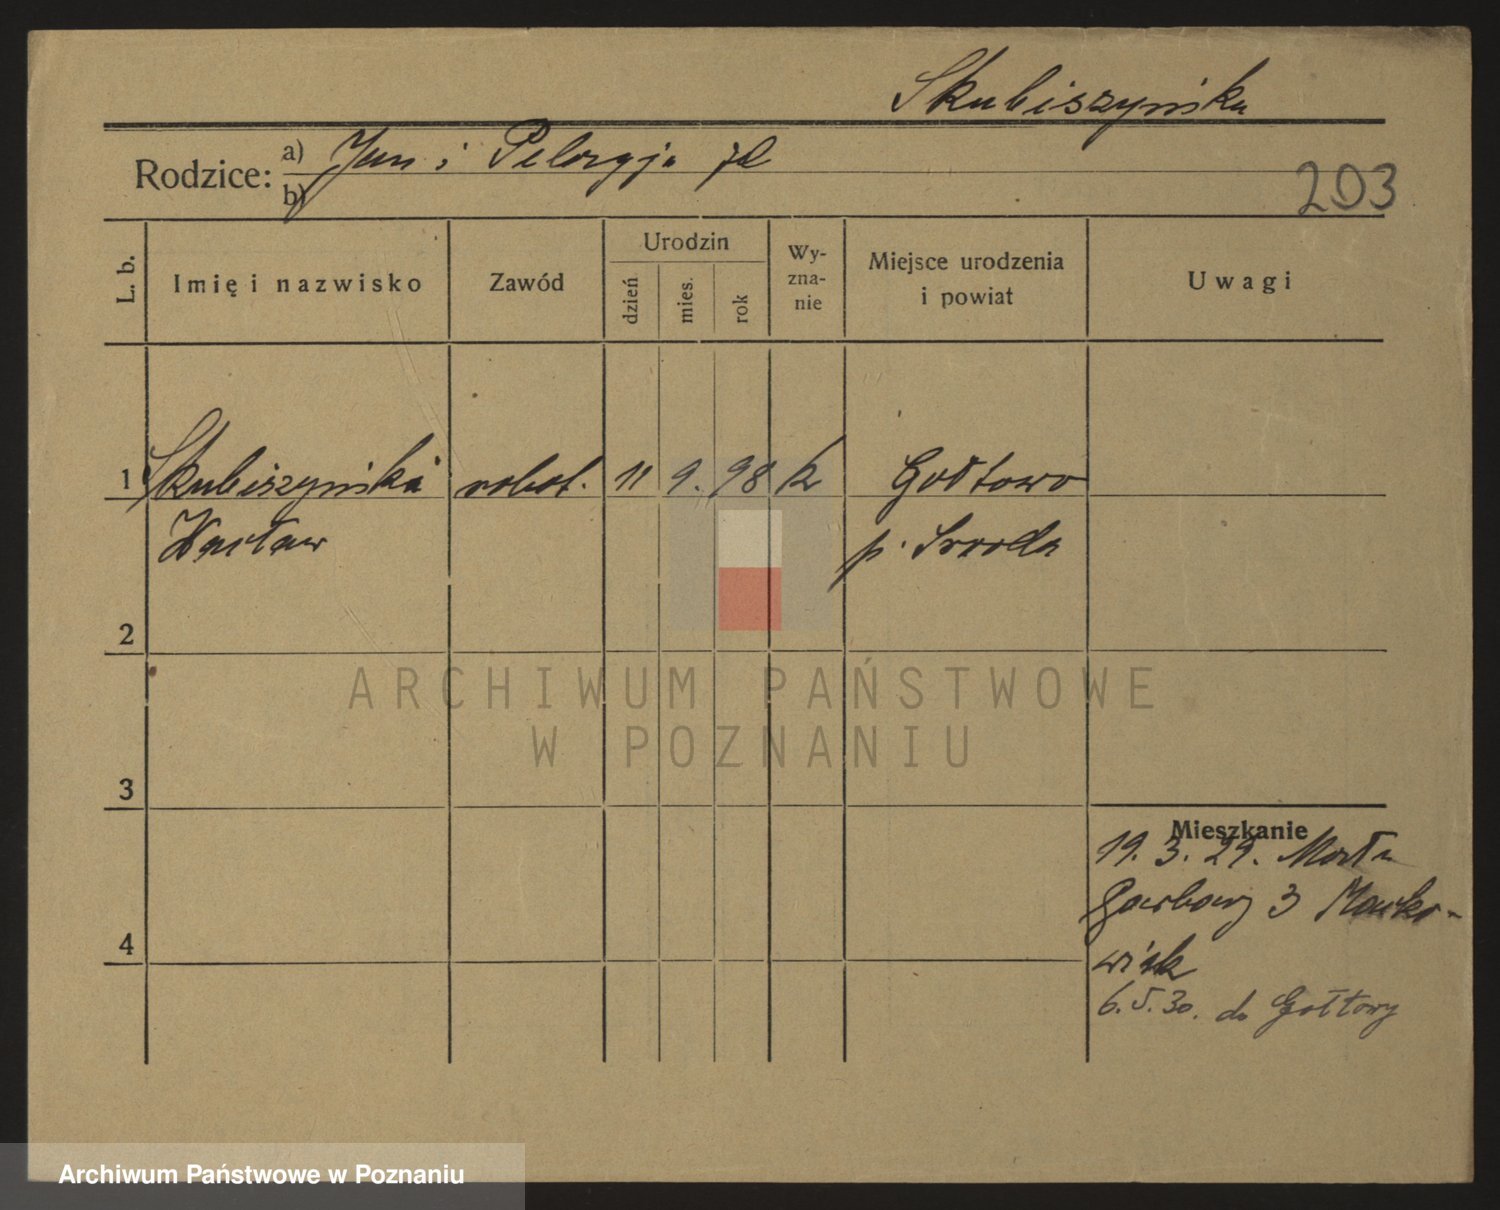 Skubiszyńska
Rodzice: a) Jan i Pelagja
b)
203
L. b.
Imię i nazwisko
Zawód
Urodzin
dzień
mies.
rok
Wy-
zna-
nie
Miejsce urodzenia
i powiat
Uwagi
1 Skubiszyńska robot. 11 9. 98 k Gołtowo
Wacław p. Środa
2
3
4
ARCHIWUM PAŃSTWOWE
W POZNANIU
Mieszkanie
19. 3. 29.
Garbary 3
6. 5. 30. do Gołtowy
Archiwum Państwowe w Poznaniu